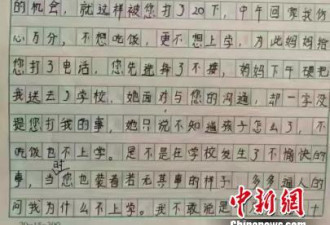 的机会，就这样被您打了20下，中午回家我伤
心万分，不想吃饭，更不想上学，为此妈妈给
您打了电话，您先进拜了不接，妈妈下午硬把
我送去了学校，她面对与您的沟通，却一字没
提您打我的事，她只说不知道孩子怎么了，不
吃饭也不上学。是不是在学校发生了不愉快的
事，当时您也装着若无其事的样子，多多逼人的
问我为什么不上学。我不敢说是
十
中新网